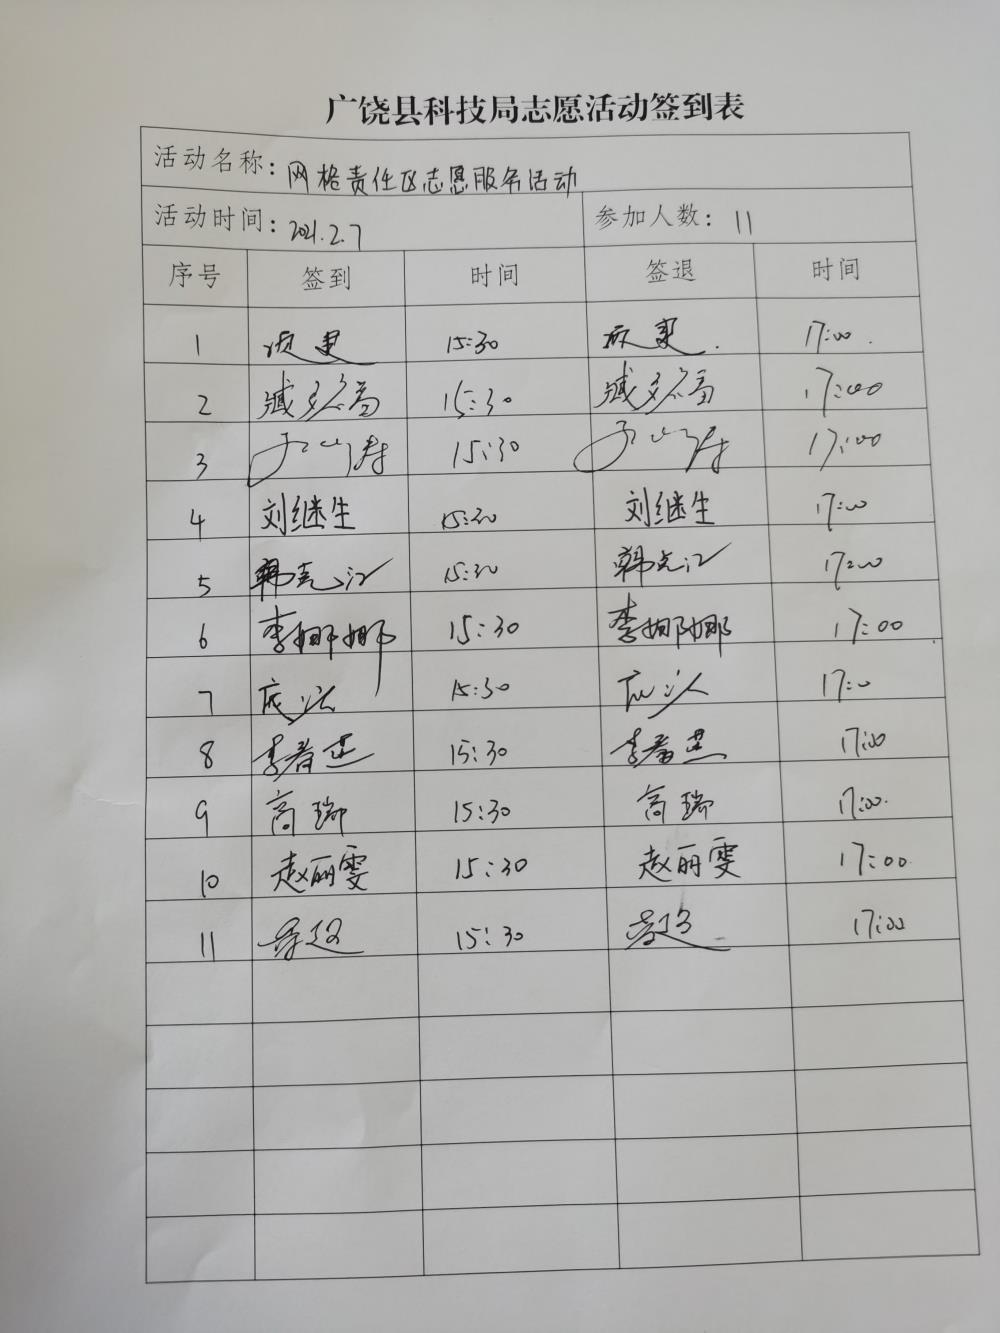 广饶县科技局志愿活动签到表
活动名称: 网格责任区志愿服务活动
活动时间: 2021.2.7 参加人数: 11
序号 签到 时间 签退 时间
1 15:30 17:00
2 15:30 17:00
3 15:30 17:00
4 刘继生 15:30 刘继生 17:00
5 韩克江 15:30 韩克江 17:00
6 李娜娜 15:30 李娜娜 17:00
7 15:30 17:00
8 李春燕 15:30 李春燕 17:00
9 高瑞 15:30 高瑞 17:00
10 赵丽雯 15:30 赵丽雯 17:00
11 15:30 17:00